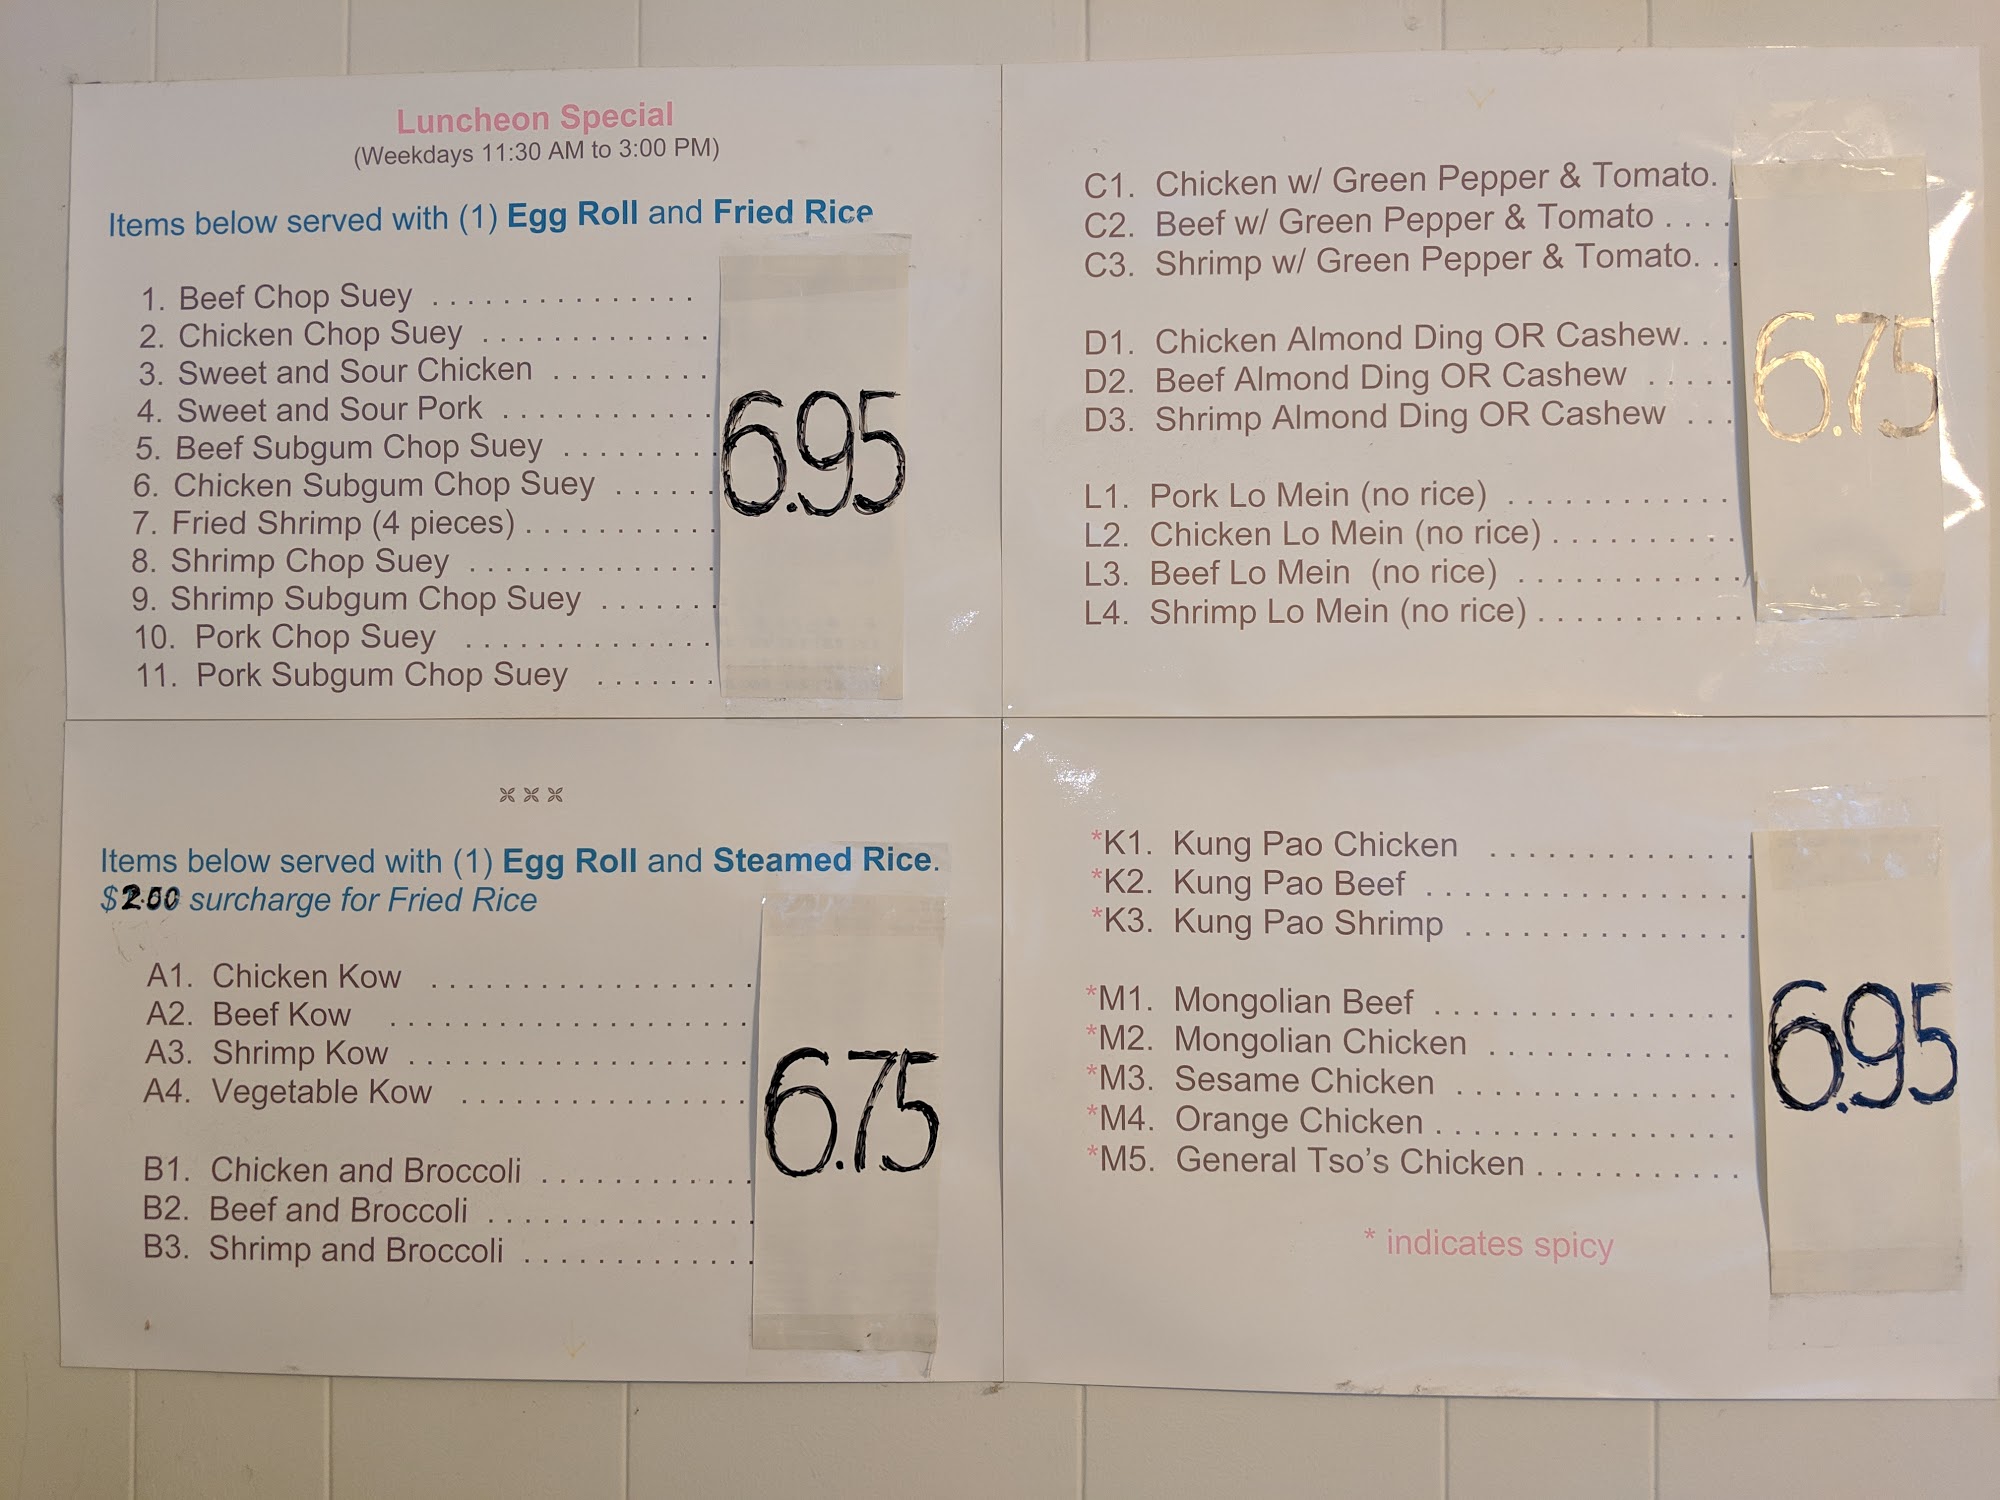 Luncheon Special
(Weekdays 11:30 AM to 3:00 PM)
Items below served with (1) Egg Roll and Fried Rice
1. Beef Chop Suey . . . . . . . . . . . . . . .
2. Chicken Chop Suey . . . . . . . . . . . . .
3. Sweet and Sour Chicken . . . . . . . . .
4. Sweet and Sour Pork . . . . . . . . . . . .
5. Beef Subgum Chop Suey . . . . . . . . .
6. Chicken Subgum Chop Suey . . . . . .
7. Fried Shrimp (4 pieces) . . . . . . . . . . .
8. Shrimp Chop Suey . . . . . . . . . . . . . .
9. Shrimp Subgum Chop Suey . . . . . . .
10. Pork Chop Suey . . . . . . . . . . . . . .
11. Pork Subgum Chop Suey . . . . . . .
6.95
C1. Chicken w/ Green Pepper & Tomato.
C2. Beef w/ Green Pepper & Tomato . . . .
C3. Shrimp w/ Green Pepper & Tomato. . .
D1. Chicken Almond Ding OR Cashew. . .
D2. Beef Almond Ding OR Cashew . . . . .
D3. Shrimp Almond Ding OR Cashew . . .
L1. Pork Lo Mein (no rice) . . . . . . . . . . . .
L2. Chicken Lo Mein (no rice) . . . . . . . . . .
L3. Beef Lo Mein (no rice) . . . . . . . . . . . .
L4. Shrimp Lo Mein (no rice) . . . . . . . . . . .
6.75
Items below served with (1) Egg Roll and Steamed Rice.
$2.50 surcharge for Fried Rice
A1. Chicken Kow . . . . . . . . . . . . . . . . . .
A2. Beef Kow . . . . . . . . . . . . . . . . . . . .
A3. Shrimp Kow . . . . . . . . . . . . . . . . . . .
A4. Vegetable Kow . . . . . . . . . . . . . . . .
B1. Chicken and Broccoli . . . . . . . . . . . .
B2. Beef and Broccoli . . . . . . . . . . . . . . .
B3. Shrimp and Broccoli . . . . . . . . . . . . .
6.75
*K1. Kung Pao Chicken . . . . . . . . . . . . . . .
*K2. Kung Pao Beef . . . . . . . . . . . . . . . . . .
*K3. Kung Pao Shrimp . . . . . . . . . . . . . . . .
*M1. Mongolian Beef . . . . . . . . . . . . . . . . .
*M2. Mongolian Chicken . . . . . . . . . . . . . .
*M3. Sesame Chicken . . . . . . . . . . . . . . . .
*M4. Orange Chicken . . . . . . . . . . . . . . . . .
*M5. General Tso's Chicken . . . . . . . . . . .
6.95
* indicates spicy